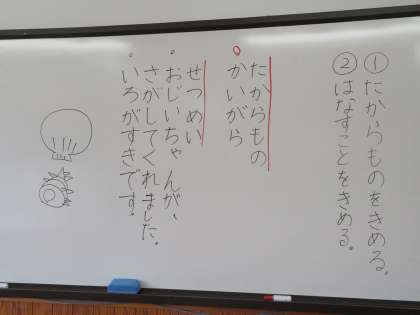 ①たからものをきめる。
②はなすことをきめる。
たからもの
○かいがら
せつめい
・おじいちゃんが、
さがしてくれました。
・いろがすきです。